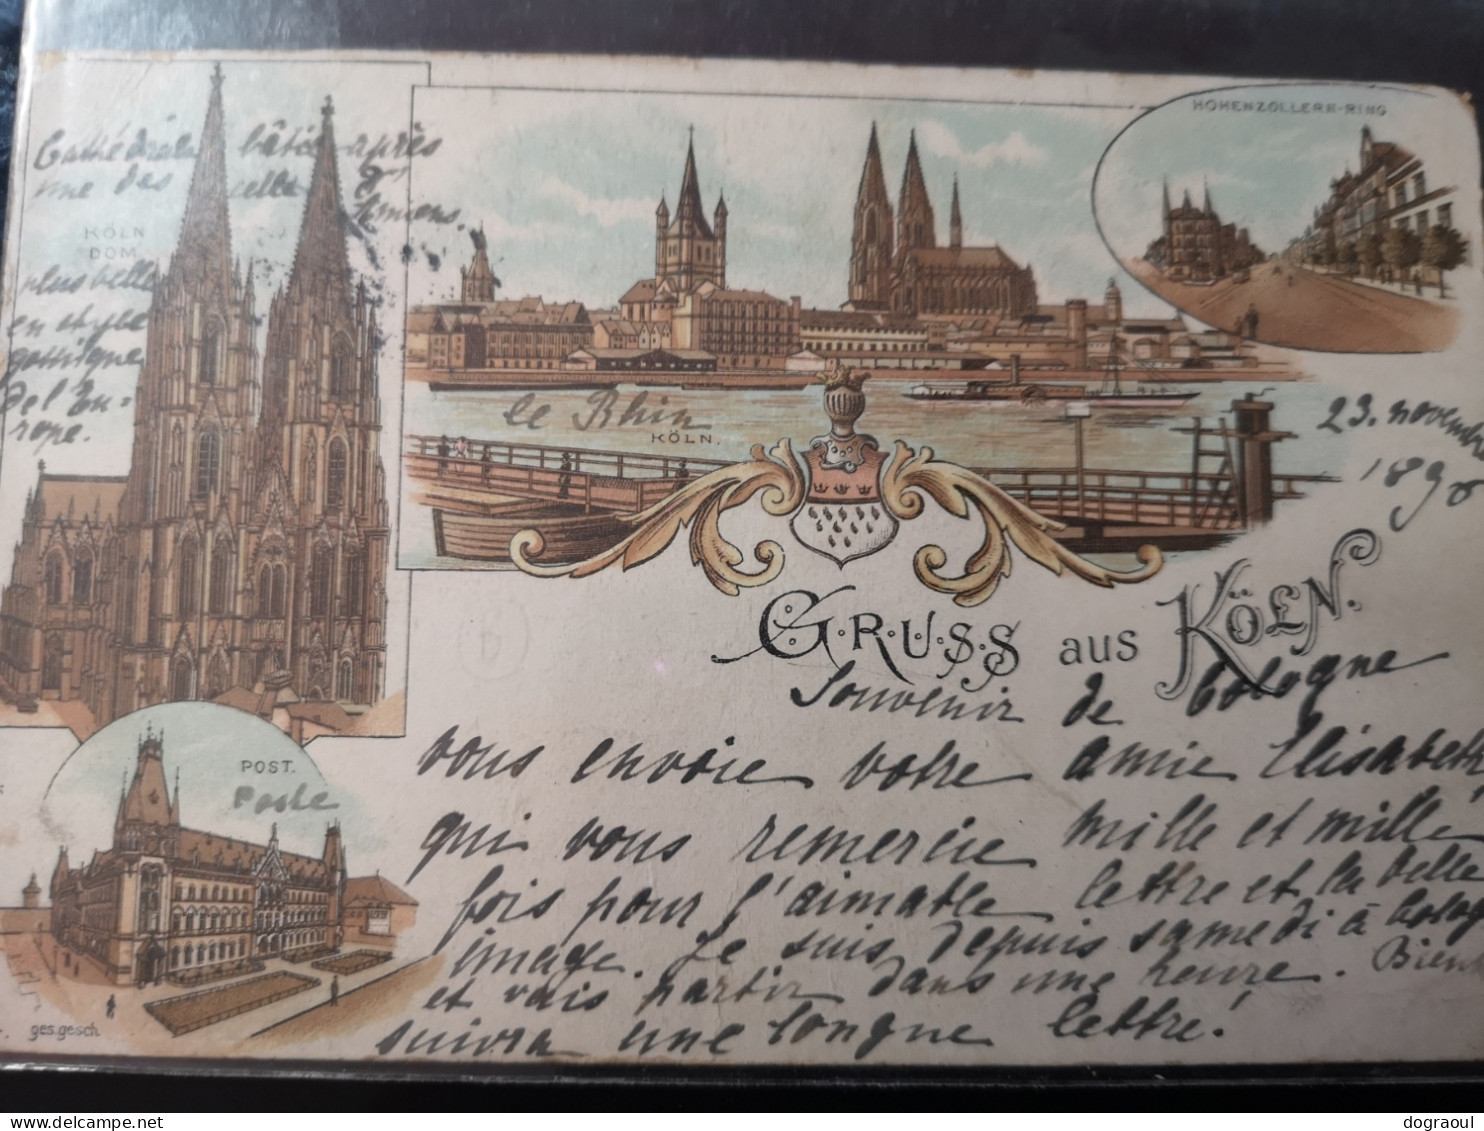 Cathédrale bâtie après
une des celle d'
Amiens.
KÖLN
DOM.
plus belle
en style
gothique
de l'Eu-
rope.
HOHENZOLLERN-RING
le Rhin
KÖLN.
23. novemb
189
GRUSS aus KÖLN.
Souvenir de Cologne
vous envoie votre amie Elisabeth
qui vous remercie mille et mille
fois pour l'aimable lettre et la belle
image. Je suis depuis samedi à Colog
et vais partir dans une heure. Bien
suivra une longue lettre.
POST.
Poste
ges.gesch.
dograoul